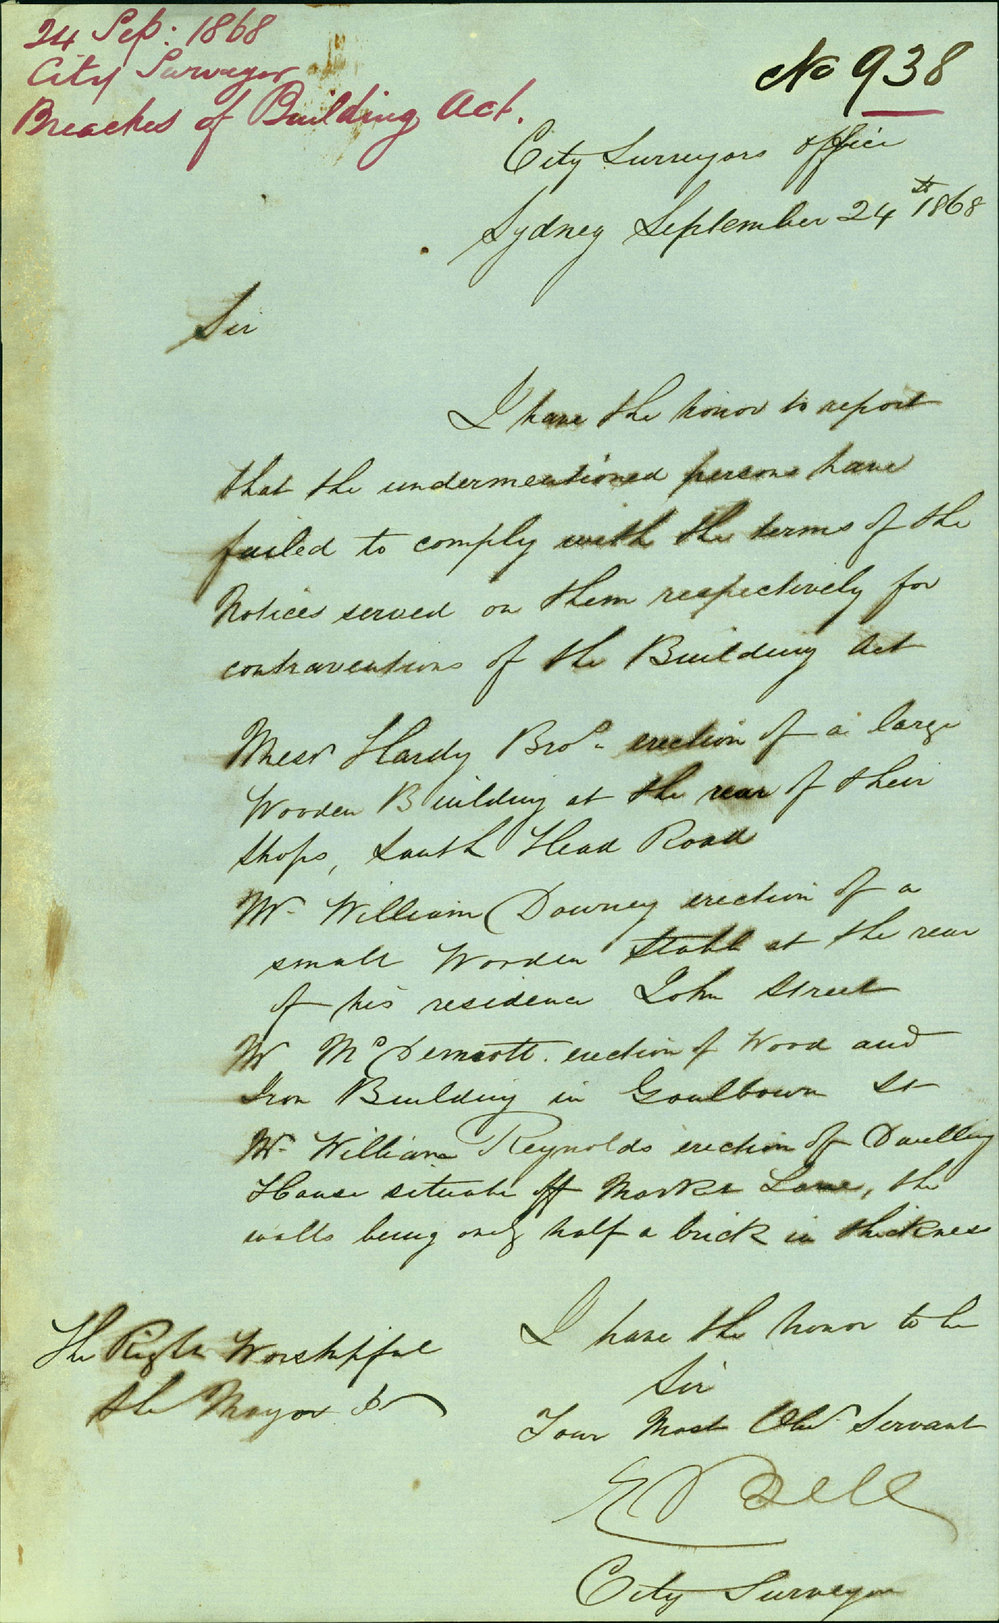 24 Sep: 1868
City Surveyor
Breaches of Building Act.
No 938
City Surveyors office
Sydney September 24th 1868
Sir
I have the honor to report
that the undermentioned persons have
failed to comply with the terms of the
Notices served on them respectively for
contraventions of the Building Act
Messrs Hardy Bros. erection of a large
Wooden Building at the rear of their
shops, South Head Road
Mr. William Downey erection of a
small Wooden Stable at the rear
of his residence John Street
Mr McDermott. erection of Wood and
Iron Building in Goulbourn St
Mr. William Reynolds erection of Dwelling
House situate off Market Lane, the
walls being only half a brick in thickness
I have the honor to be
Sir
Your Most Obdt Servant
E Bell
City Surveyor
The Right Worshipful
the Mayor &c